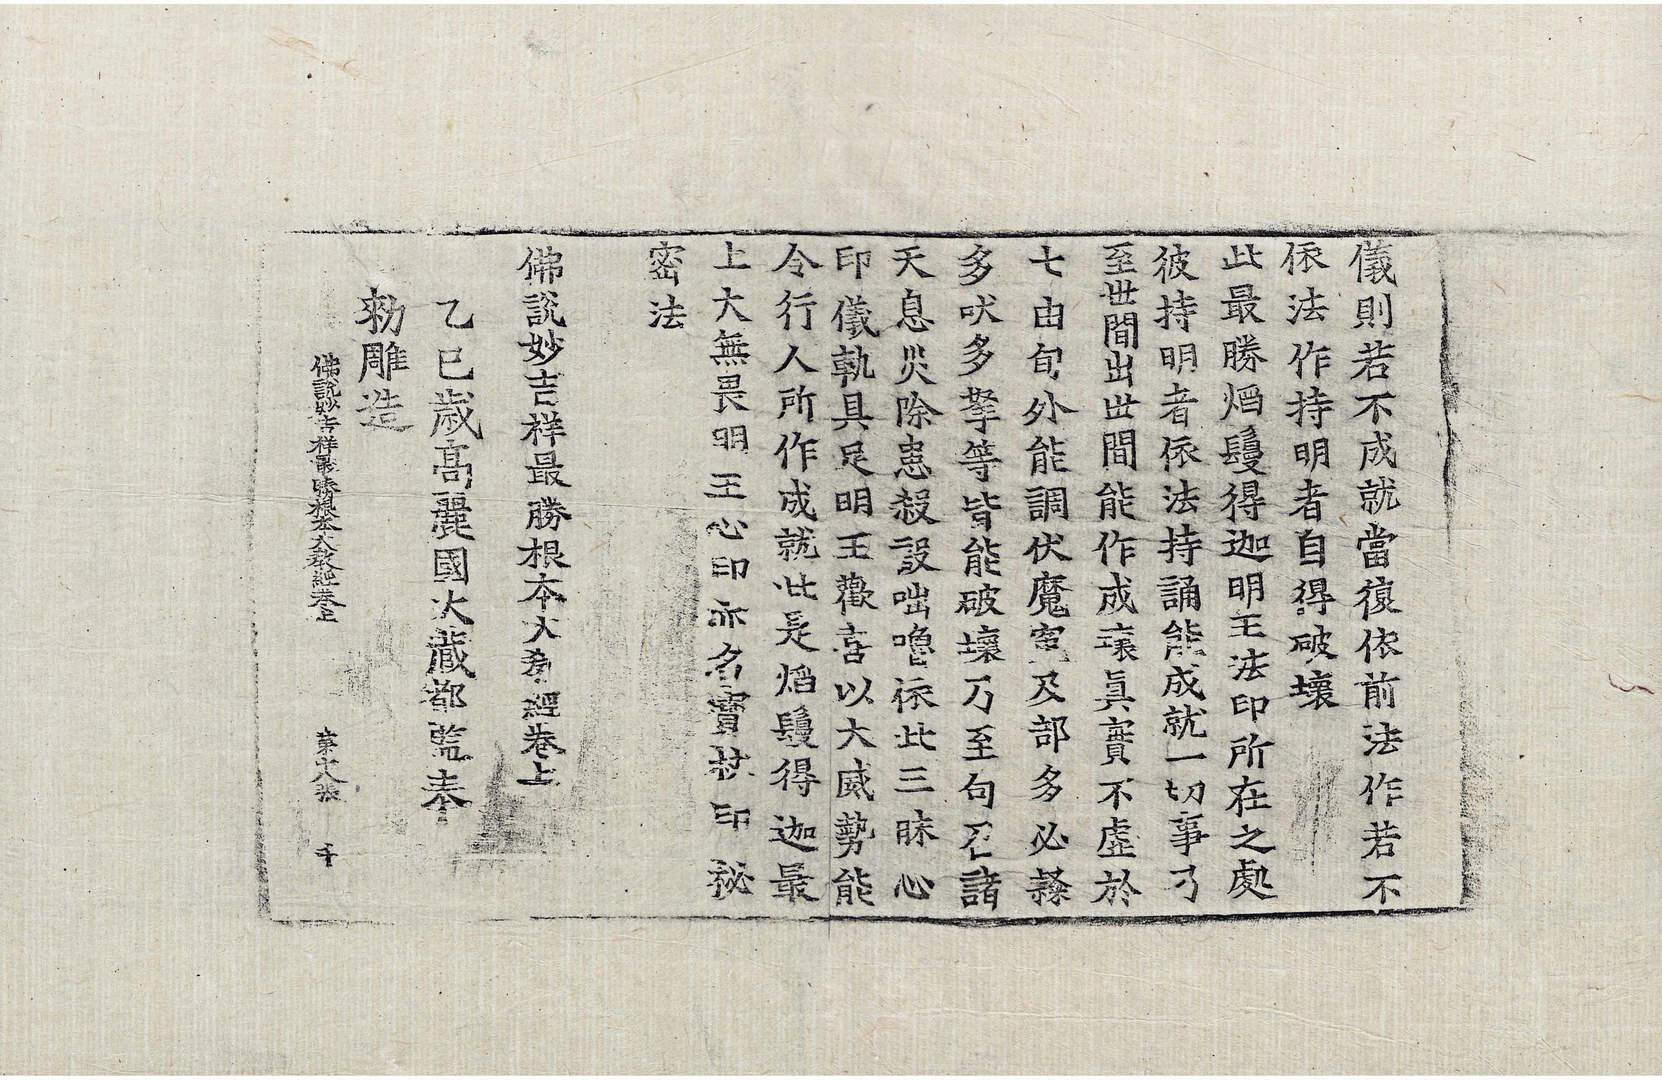 儀則若不成就當復依前法作若不
依法作持明者自得破壞
此最勝焰鬘得迦明王法印所在之處
彼持明者依法持誦能成就一切事乃
至世間出世間能作成壞眞實不虛於
七由旬外能調伏魔冤及部多必隸
多吠多拏等皆能破壞乃至句召諸
天息災除患殺設咄嚕依此三昧心
印儀軌具足明王歡喜以大威勢能
令行人所作成就此是焰鬘得迦最
上大無畏明王心印亦名寶杖印祕
密法
佛說妙吉祥最勝根本大教經卷上
乙巳歲高麗國大藏都監奉
勑雕造
佛說妙吉祥最勝根本大教經卷上 第十八張 千